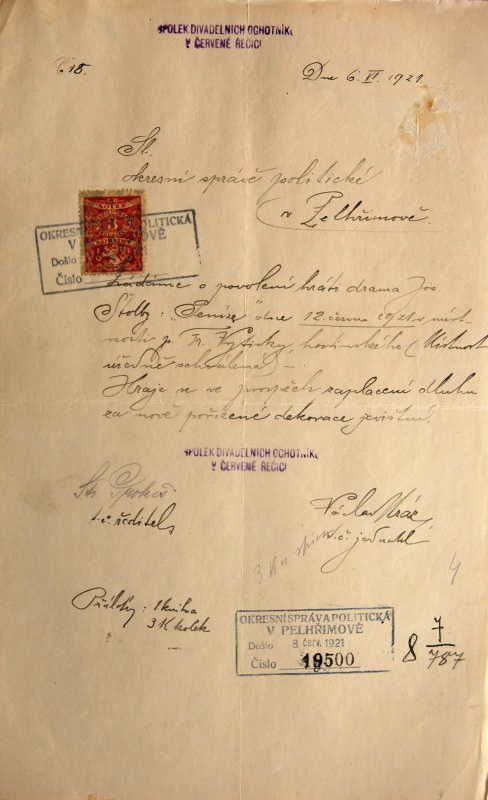 SPOLEK DIVADELNÍCH OCHOTNÍKŮ
V ČERVENÉ ŘEČICI
Č 18.
Dne 6. VI. 1921
Sl.
okresní správě politické
v Pelhřimově.
OKRESNÍ POLITICKÁ
V
Došlo
Číslo
3
Žádáme o povolení hráti drama Jos.
Štolby: „Peníze" dne 12. června 1921 v míst-
nosti p. Fr. hostinského (Místnost
úředně schválena) –
Hraje se ve prospěch zaplacení dluhu
za nově pořízené dekorace jevištní.
SPOLEK DIVADELNÍCH OCHOTNÍKŮ
V ČERVENÉ ŘEČICI
t. č. ředitel
Václav Mráz
t. č. jednatel
3 K
4
Přílohy: 1 kniha
3 K kolek
OKRESNÍ SPRÁVA POLITICKÁ
V PELHŘIMOVĚ
Došlo 8. červ. 1921
Číslo 19500
8 7/787